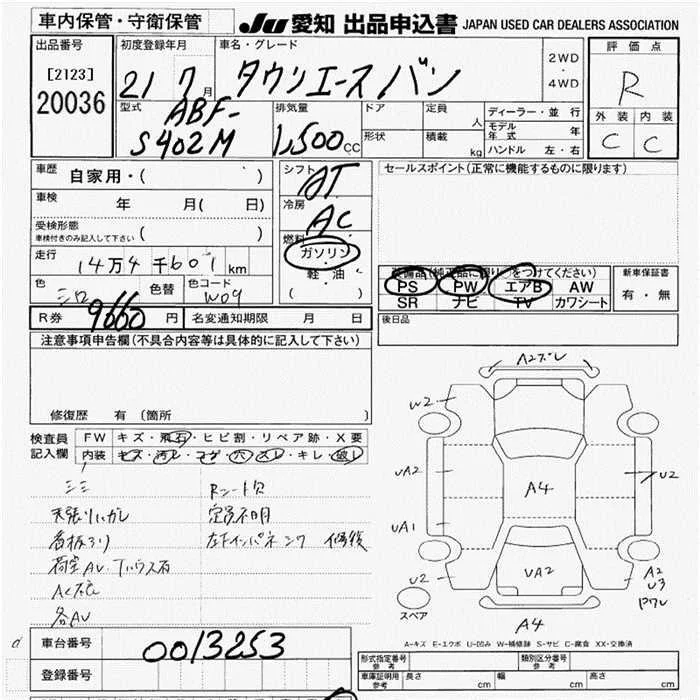 車内保管・守衛保管
JU 愛知 出品申込書 JAPAN USED CAR DEALERS ASSOCIATION
出品番号
[2123]
20036
初度登録年月
21 7月
車名・グレード
タウンエースバン
2WD
・
4WD
評価点
R
外装 内装
C C
型式
ABF-
S402M
排気量
1,500cc
ドア
形状
定員 人
積載 kg
ディーラー・並行
モデル年式 年
ハンドル 左・右
車歴
自家用・( )
車検 年 月( 日)
受検形態
車検付きのみ記入して下さい ( )
走行
14万4千601km
色 シロ 色替 色コード W09
シフト AT
冷房 AC
燃料
ガソリン
軽・油
( )
セールスポイント(正常に機能するものに限ります)
装備品(純正品に限り○をつけてください)
PS PW エアB AW
SR ナビ TV カワシート
新車保証書
有・無
R券 9660円 名変通知期限 月 日
後日品
注意事項申告欄(不具合内容等は具体的に記入して下さい)
修復歴 有(箇所 )
検査員
記入欄
FW キズ・飛石・ヒビ割・リペア跡・X要
内装 キズ・汚レ・コゲ・穴・スレ・キレ・破レ
シミ Rシート欠
天張りハガレ 定員不明
看板跡り
左下インパネ 修後
荷室AV
AC
各AV
A2ズレ
W2
UA2
UA1
U2
A4
UA2
U2
A2
U3
スペア
A4
A-キズ E-エクボ U-凹み W-補修跡 S-サビ C-腐食 XX-交換済
車台番号
0013253
登録番号
形式指定番号
参考
類別区分番号
参考
車庫証明用
参考
長さ cm 幅 cm 高さ cm